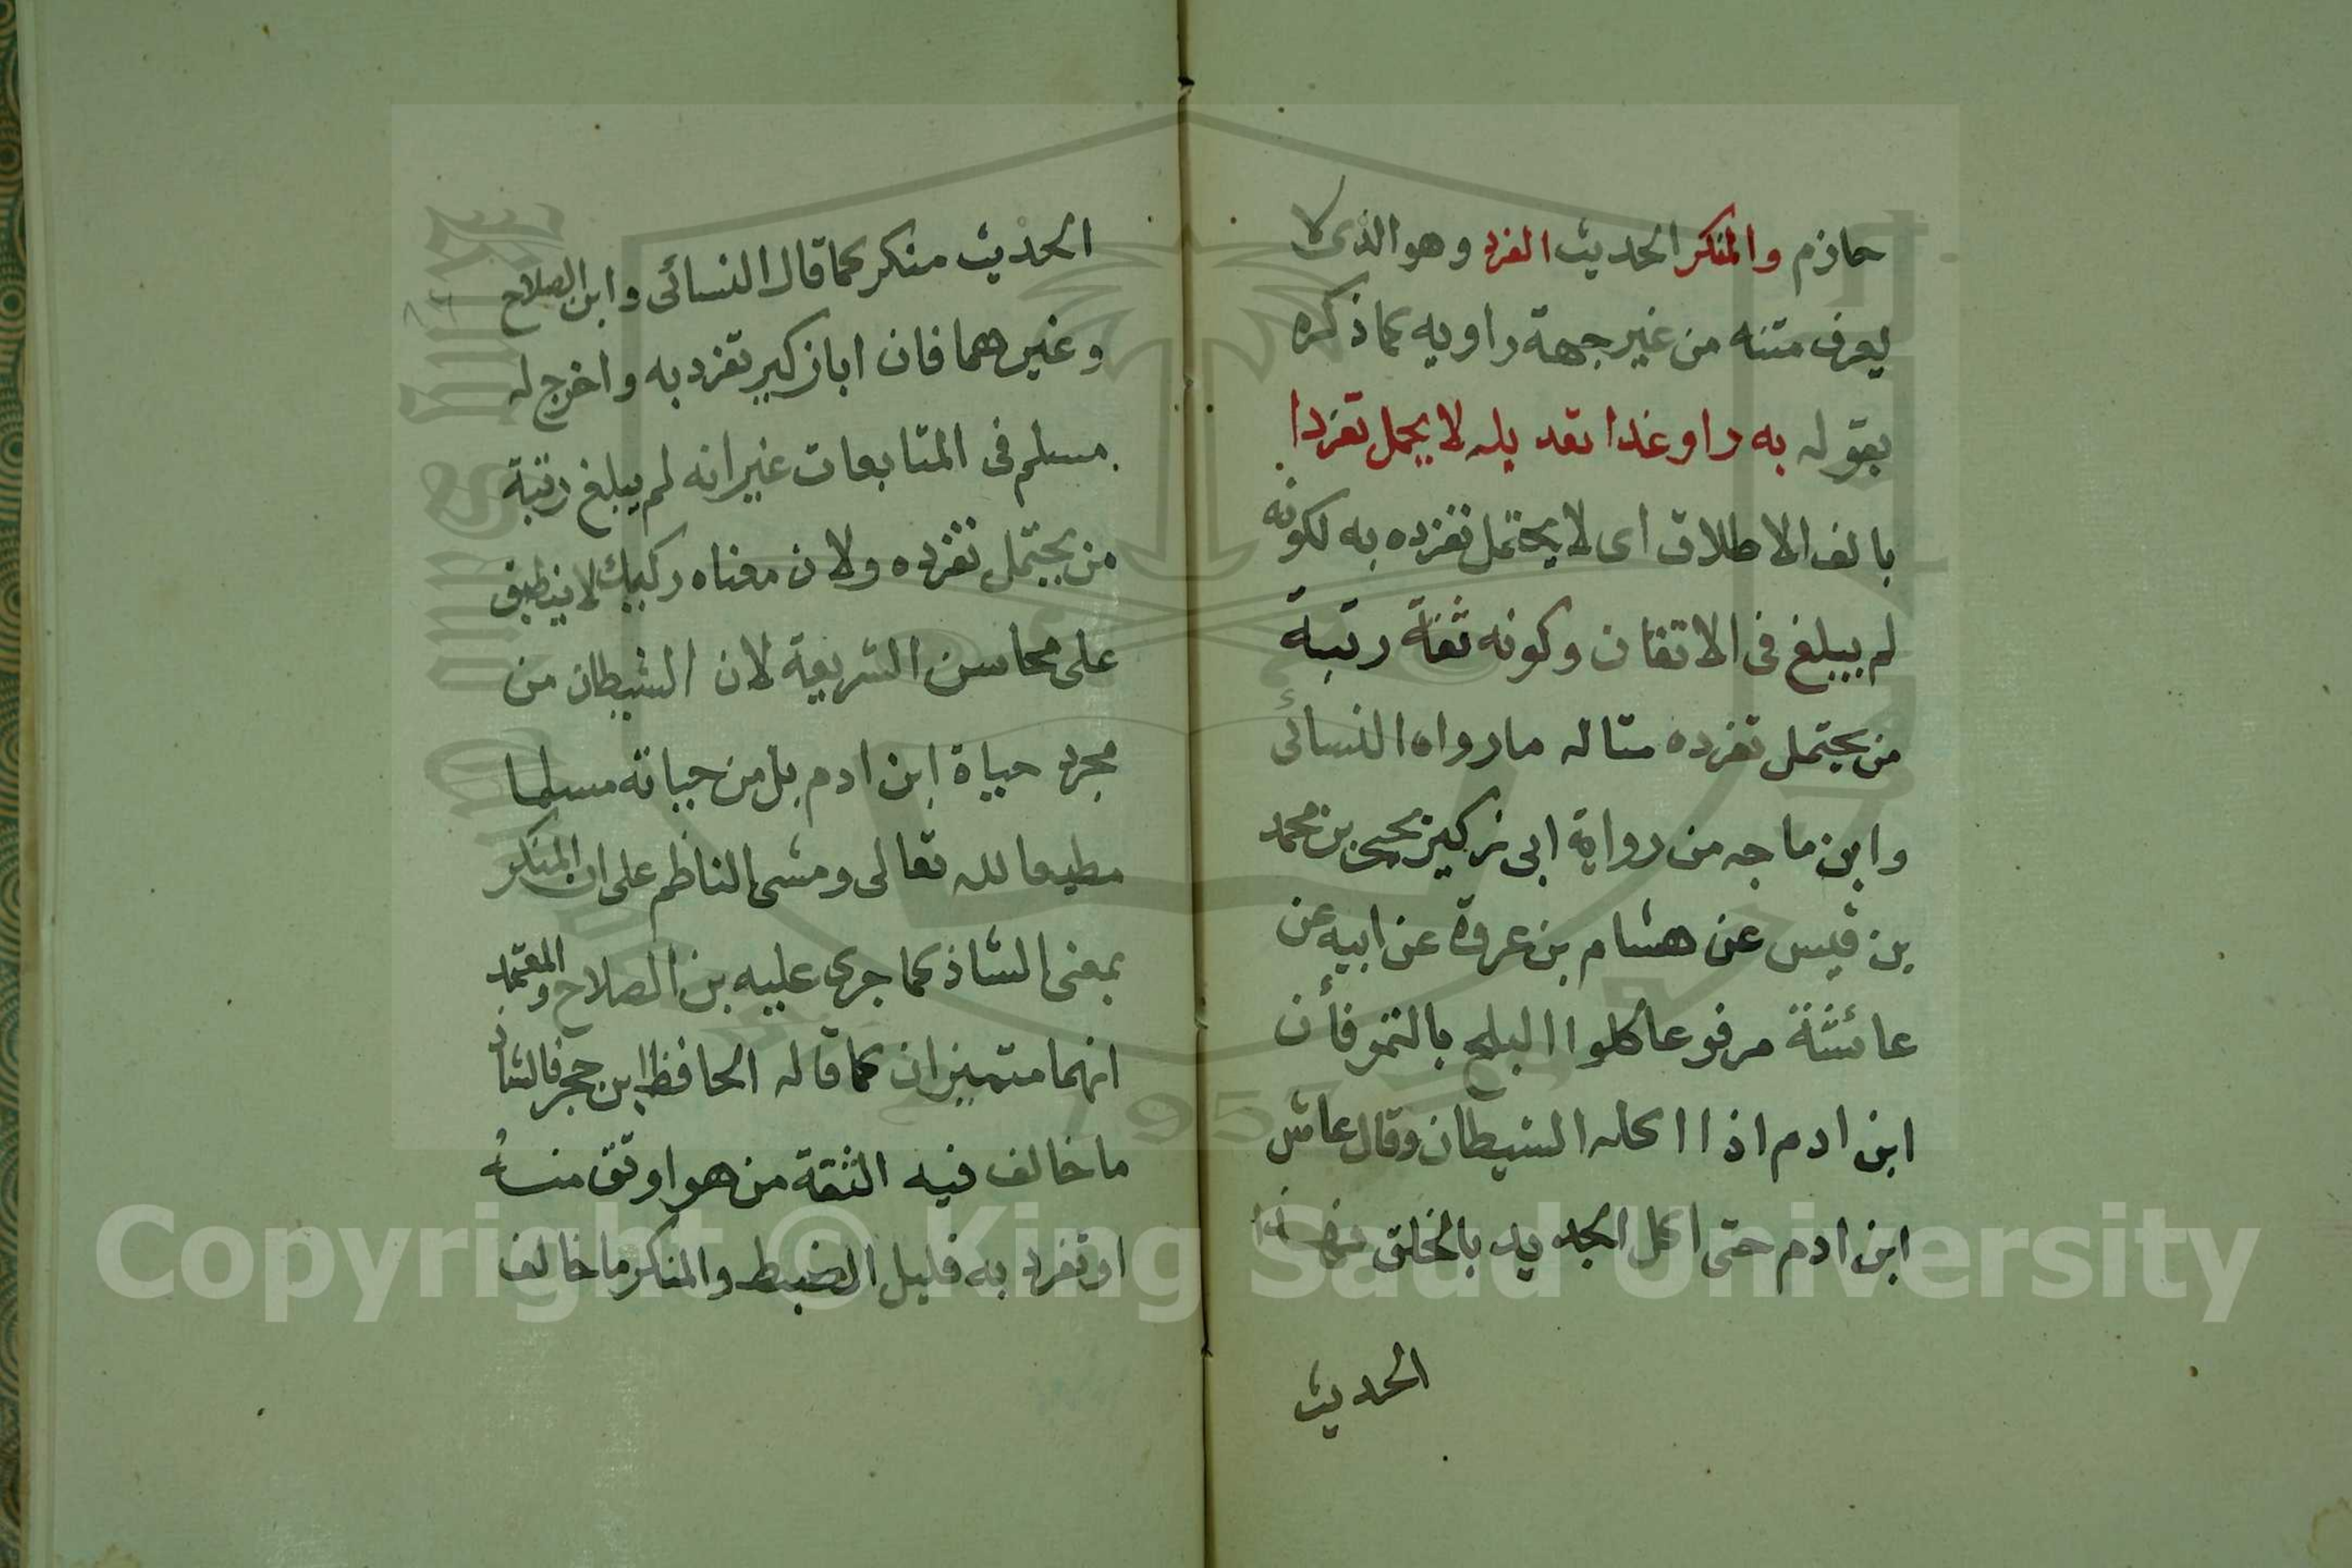 حازم والمنكر الحديث الفرد وهو الذى لا
يعرف متنه من غير جهة راويه كما ذكره
بقوله به راو غدا تعديله لا يحمل تفردا
بالف الاطلاق اى لا يحتمل تفرده به لكونه
لم يبلغ فى الاتقان وكونه ثقة رتبة
من يحتمل تفرده مثاله مارواه النسائى
وابن ماجه من رواية ابى زكير يحيى بن محمد
بن قيس عن هشام بن عروة عن ابيه عن
عائشة مرفوعا كلوا البلح بالتمر فأن
ابن ادم اذا اكله الشيطان وقال عاش
ابن ادم حتى اكل الجديد بالخلق فهذا
الحديث
الحديث منكر كما قال النسائى وابن الصلاح
وغيرهما فان ابا زكير تفرد به واخرج له
مسلم فى المتابعات غير انه لم يبلغ رتبة
من يحتمل تفرده ولان معناه ركيك لا ينطبق
على محاسن الشريعة لان الشيطان من
مجرد حياة ابن ادم بل من حياته مسلما
مطيعا لله تعالى ومشى الناظم على ان المنكر
بمعنى الشاذ كما جرى عليه بن الصلاح والمعتمد
انهما متميزان كما قاله الحافظ ابن حجر فالشاذ
ما خالف فيه الثقة من هو اوثق منه
او تفرد به قليل الضبط والمنكر ما خالف
Copyright © King Saud University